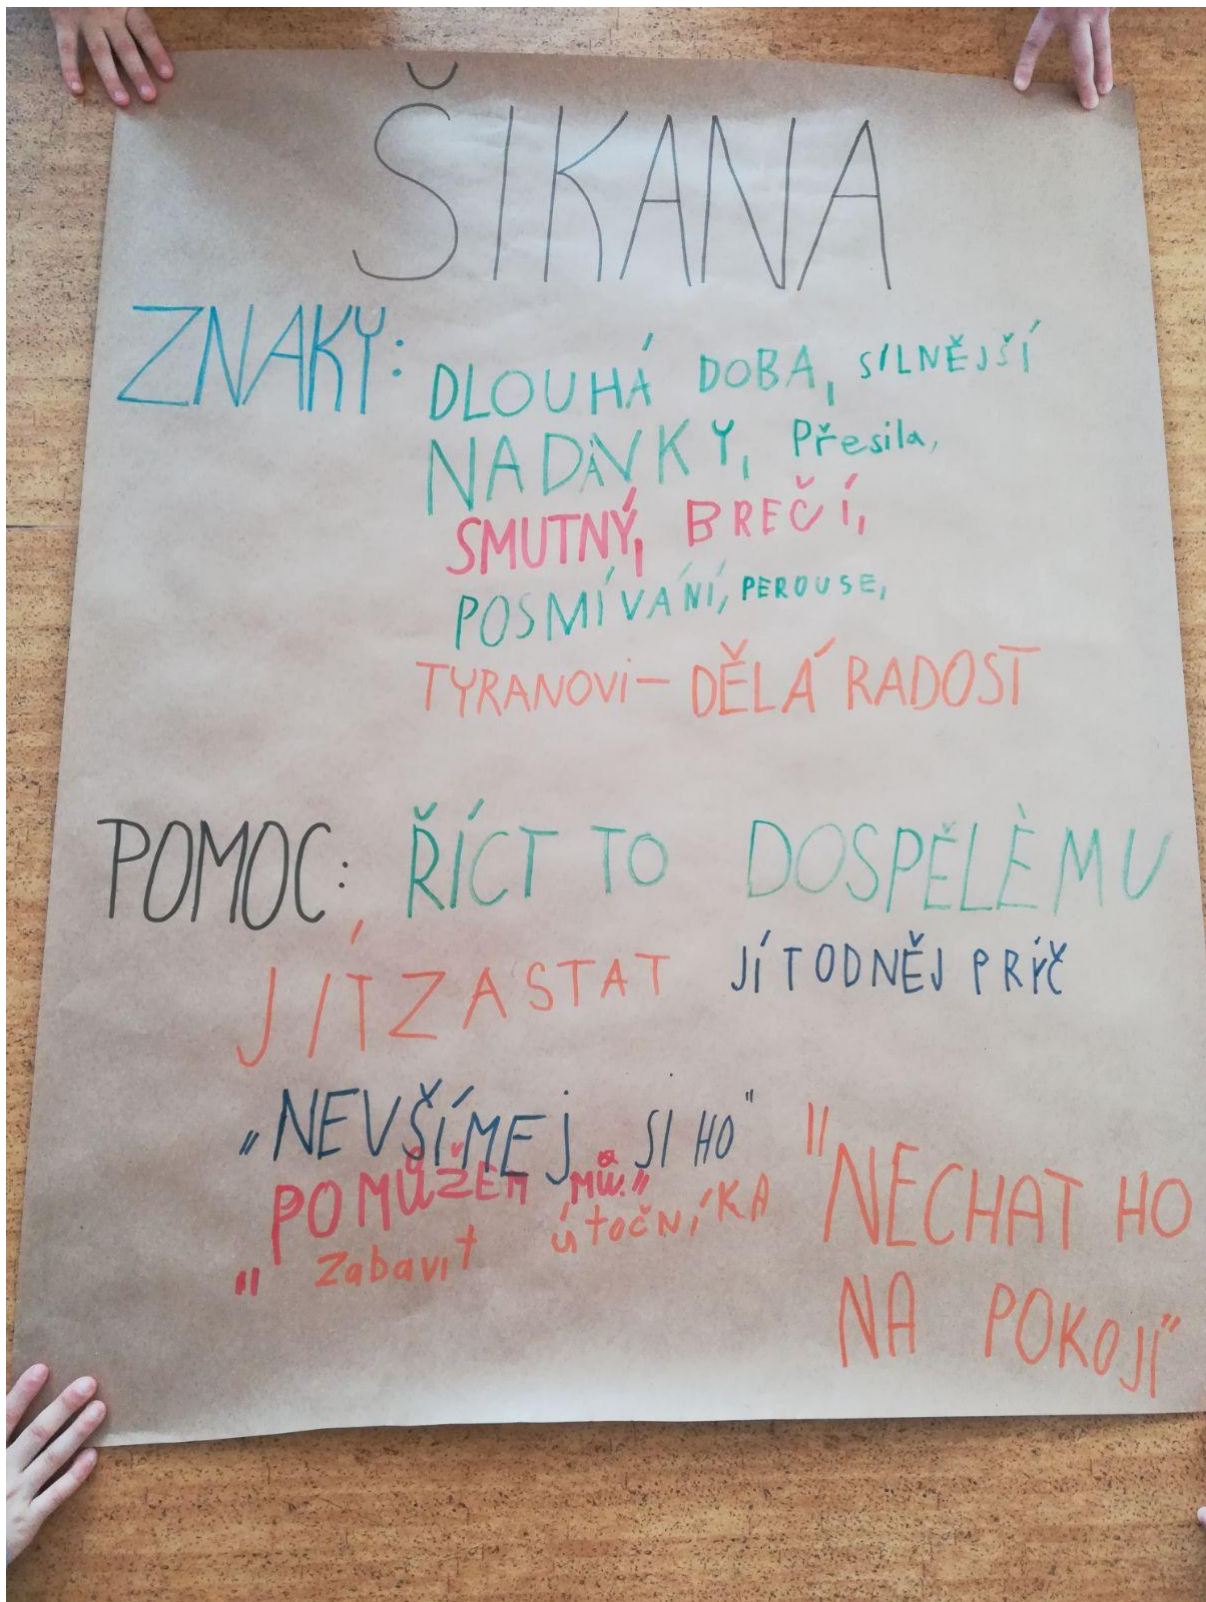 ŠIKANA
ZNAKY: DLOUHÁ DOBA, SILNĚJŠÍ
NADÁVKY, Přesila,
SMUTNÝ, BREČÍ,
POSMÍVÁNÍ, PEROUSE,
TYRANOVi – DĚLÁ RADOST
POMOC: ŘÍCT TO DOSPĚLÈMU
JÍT ZASTAT JÍT ODNĚJ PRÝČ
„NEVŠÍMEj SI HO"
POMŮŽEM MŮ."
„ Zabavit útočNíKA
"NECHAT HO
NA POKOJÍ"